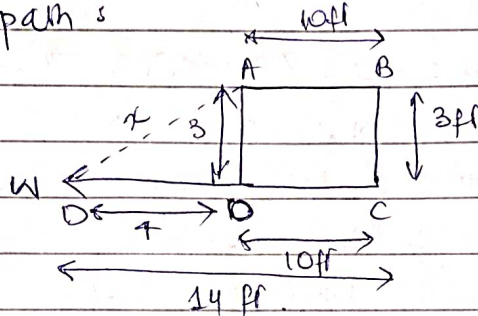 path :
10ft
A B
x 3 3ft
W
D 4 D C
10ft
14 ft.